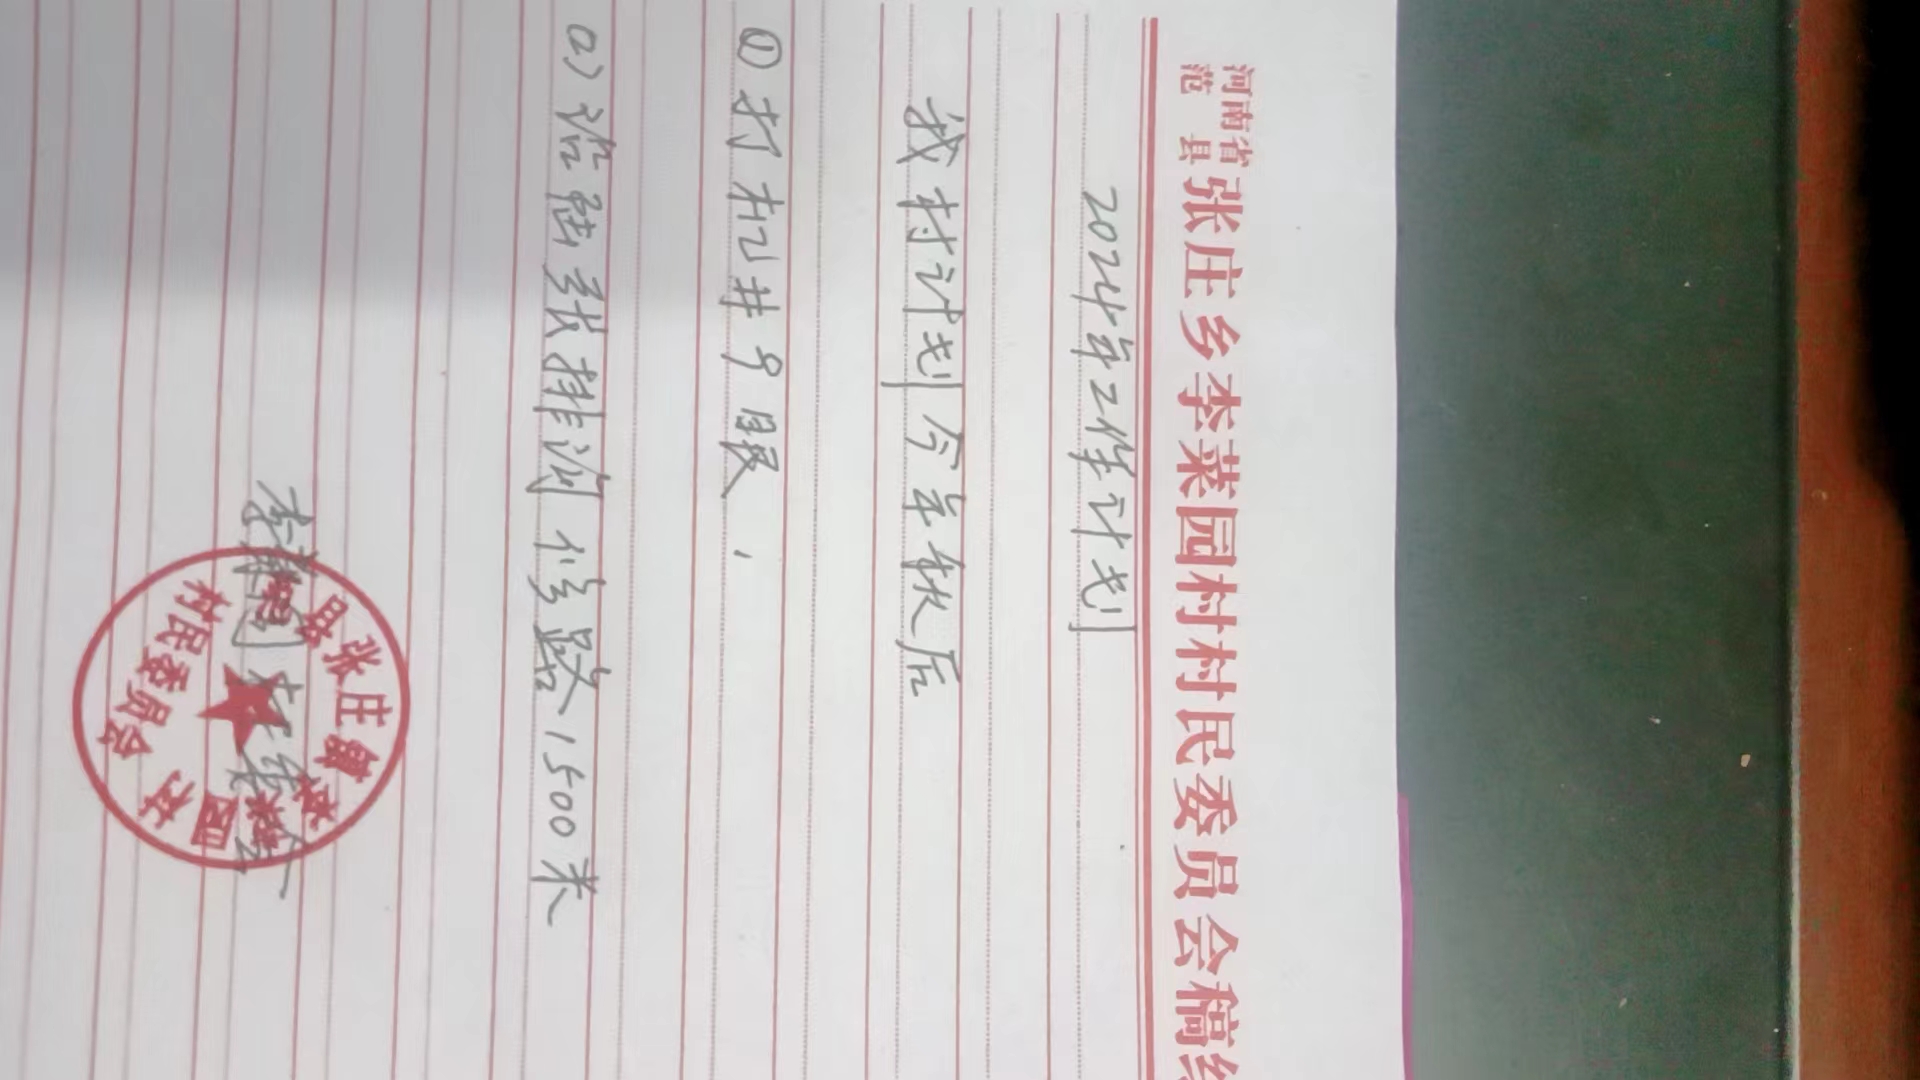 河南省
范县
张庄乡李菜园村村民委员会稿
2024年工作计划
我村计划今年秋后
①打机井9眼,
(2)沿陆张排沟修路1500米
李菜园村委会
县张庄镇李菜园村
村民委员会